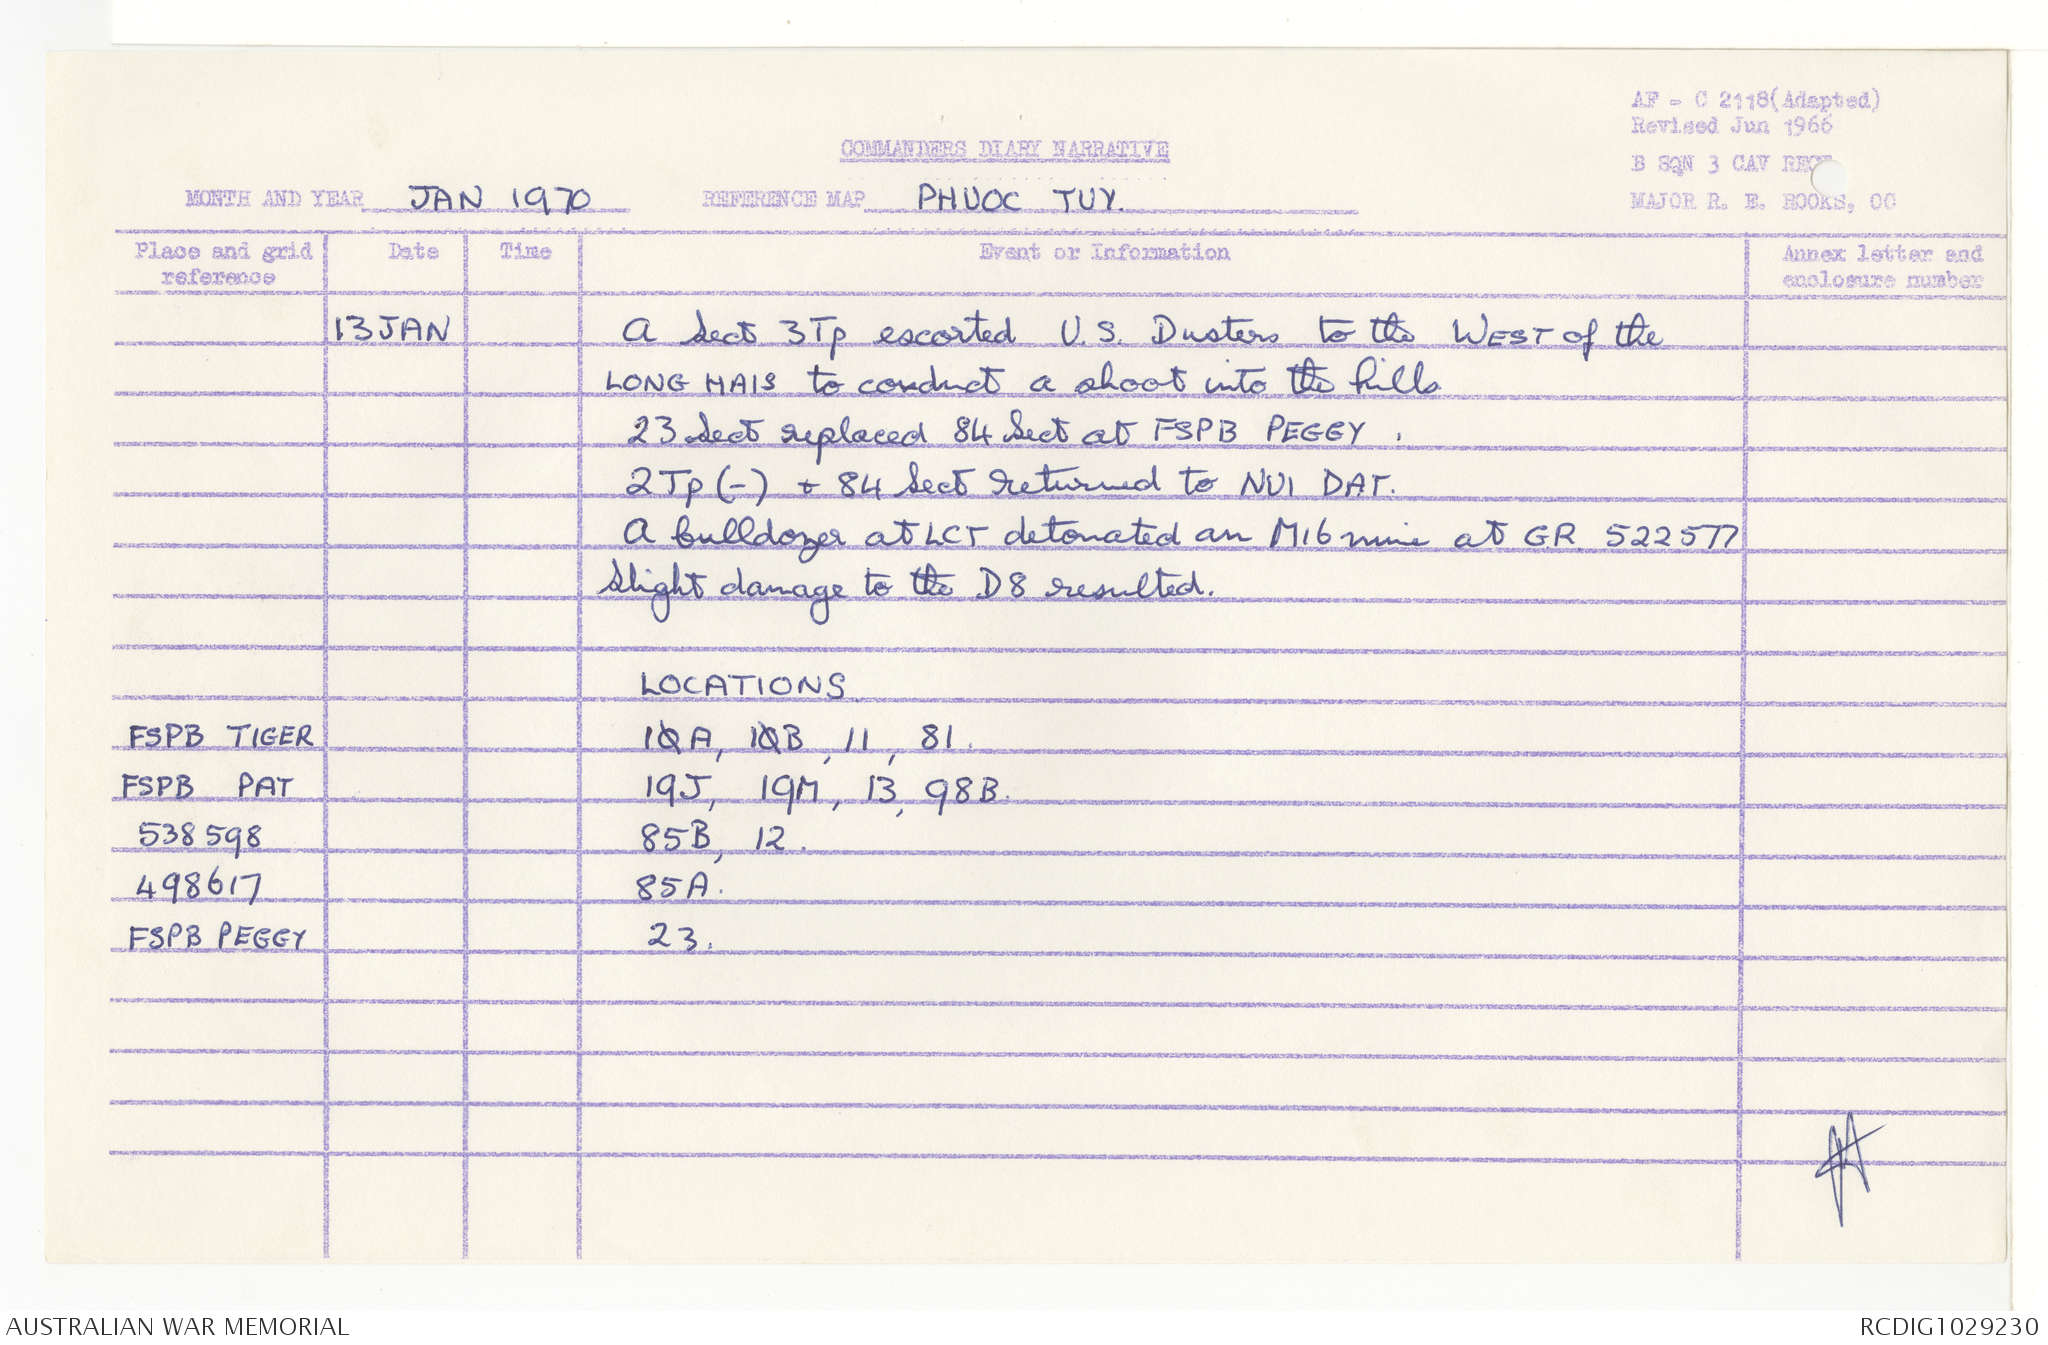 AF - C 2118(Adapted)
Revised Jun 1966
COMMANDERS DIARY NARRATIVE
B SQN 3 CAV REGT
MONTH AND YEAR JAN 1970 REFERENCE MAP PHUOC TUY. MAJOR R. E. ROOKS, OC
Place and grid reference Date Time Event or Information Annex letter and enclosure number
13 JAN A Sect 3Tp escorted U.S. Dusters to the WEST of the
LONG HAIS to conduct a shoot into the hills
23 Sect replaced 84 Sect at FSPB PEGGY.
2Tp (-) + 84 Sect returned to NUI DAT.
A bulldozer at LCT detonated an M16 mine at GR 522577
Slight damage to the D8 resulted.
LOCATIONS
FSPB TIGER 10A, 10B, 11, 81.
FSPB PAT 19J, 19M, 13, 98B.
538598 85B, 12.
498617 85A.
FSPB PEGGY 23.
AUSTRALIAN WAR MEMORIAL RCDIG1029230